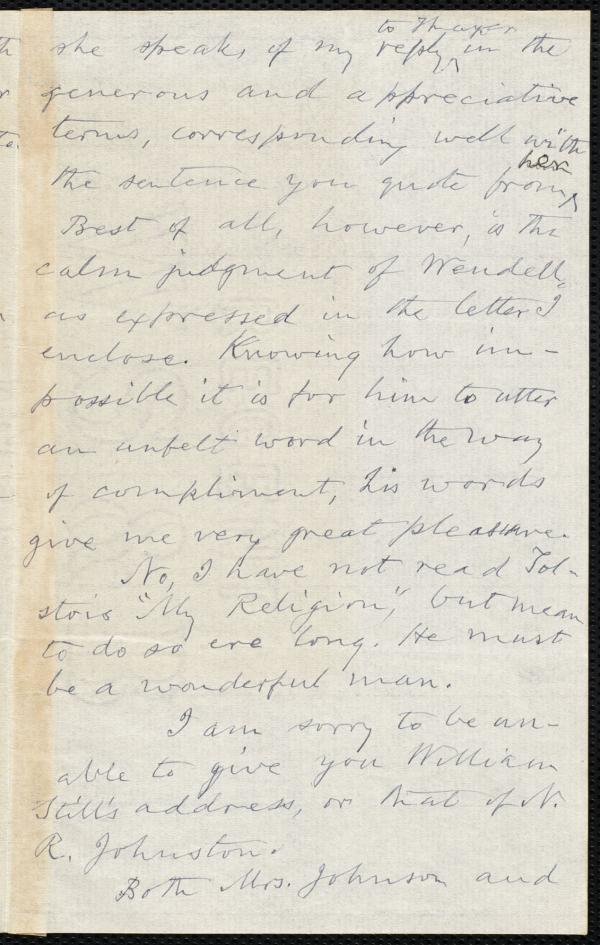 to Thayer
she speaks of my reply in the
generous and appreciative
terms, corresponding well with
her
the sentence you quote from
Best of all, however, is the
calm judgment of Wendell,
as expressed in the letter I
enclose. Knowing how im-
possible it is for him to utter
an unfelt word in the way
of compliment, his words
give me very great pleasure.
No, I have not read Tol-
stois "My Religion", but mean
to do so ere long. He must
be a wonderful man.
I am sorry to be un-
able to give you William
Still's address, or that of N.
R. Johnston.
Both Mrs. Johnson and